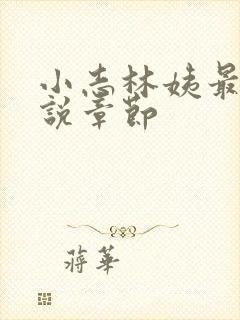 小志林姨最
說章節
蔣華